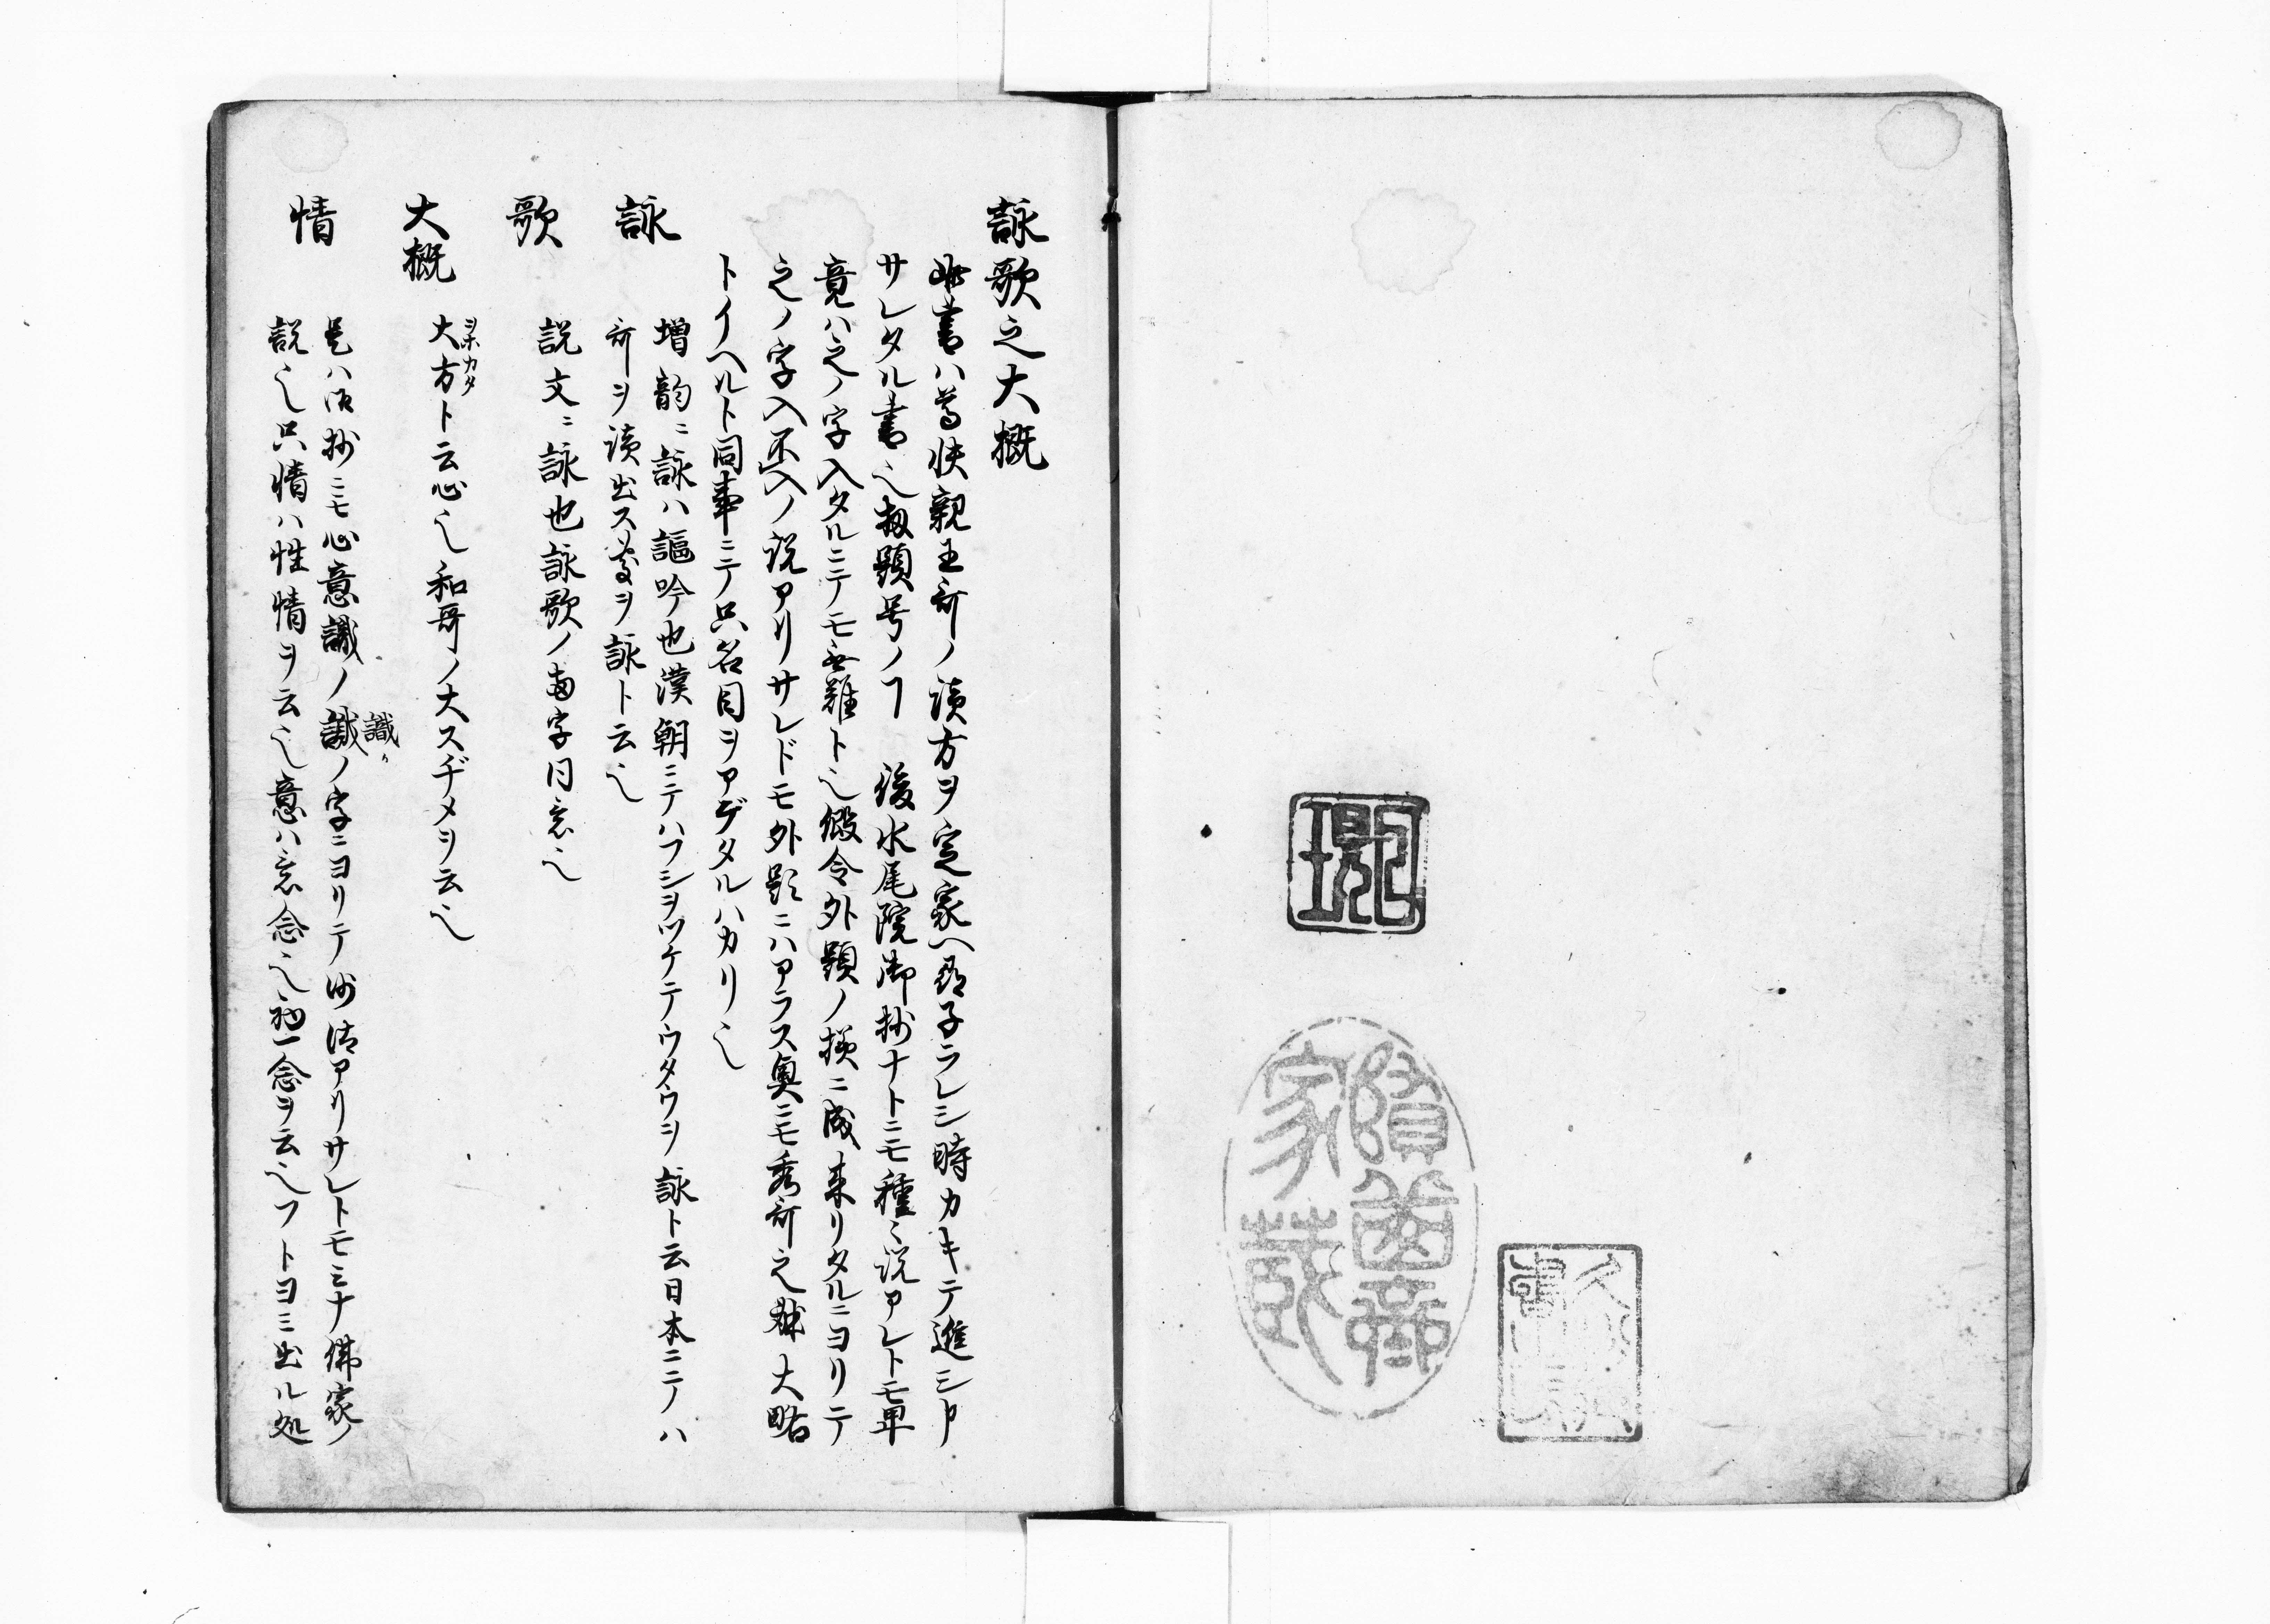 詠歌之大概
此書ハ尊快親王哥ノ読方ヲ定家ヘ尋子ラレシ時カキテ進シ申
サレタル書也扨題号ノヿ 後水尾院御抄ナトニモ種々説アレトモ畢
竟ハ之ノ字入タルニテモ無難ト也縦令外題ノ様ニ成来リタルニヨリテ
之ノ字入不入ノ説アリサレドモ外題ニハアラス奥ニモ秀哥之躰大略
トイヘルト同事ニテ只名目ヲアゲタルハカリ也
詠
増韵ニ詠ハ謳吟也漢朝ニテハフシヲツケテウタウヲ詠ト云日本ニテノハ
哥ヲ読出ス事ヲ詠ト云也
歌
説文ニ詠也詠歌ノ両字同意也
大概
大方ト云心也和哥ノ大スヂメヲ云也
ヲホカタ
情
是ハ御抄ニモ心意識ノ識ノ字ニヨリテ沙汰アリサレトモミナ佛家ノ
識カ
説也只情ハ性情ヲ云也意ハ意念也一念ヲ云也フトヨミ出ル処
家蔵